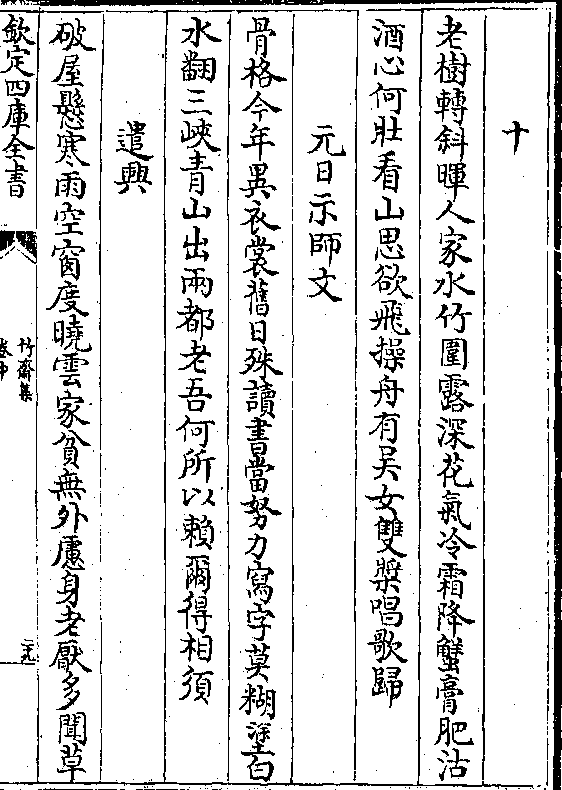 十
老樹轉斜暉人家水竹圍露深花氣冷霜降蟹膏肥沽
酒心何壯看山思欲飛操舟有吴女雙槳唱歌歸
元日示師文
骨格今年異衣裳舊日殊讀書當努力寫字莫糊塗白
水翻三峽青山出兩都老吾何所以賴爾得相須
遣興
破屋懸寒雨空窗度曉雲家貧無外慮身老厭多聞草
欽定四庫全書
竹齋集
卷中